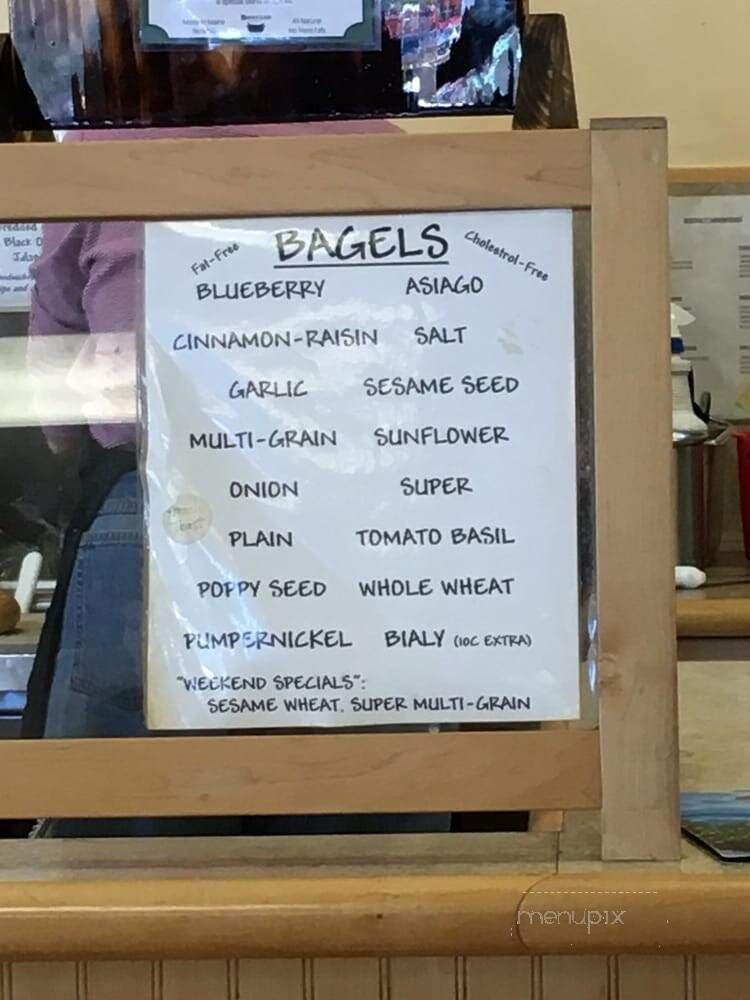 All Natural
Black
BAGELS
Fat-Free
Cholestrol-Free
BLUEBERRY ASIAGO
CINNAMON-RAISIN SALT
GARLIC SESAME SEED
MULTI-GRAIN SUNFLOWER
ONION SUPER
PLAIN TOMATO BASIL
POPPY SEED WHOLE WHEAT
PUMPERNICKEL BIALY (10C EXTRA)
"WEEKEND SPECIALS":
SESAME WHEAT, SUPER MULTI-GRAIN
menupix